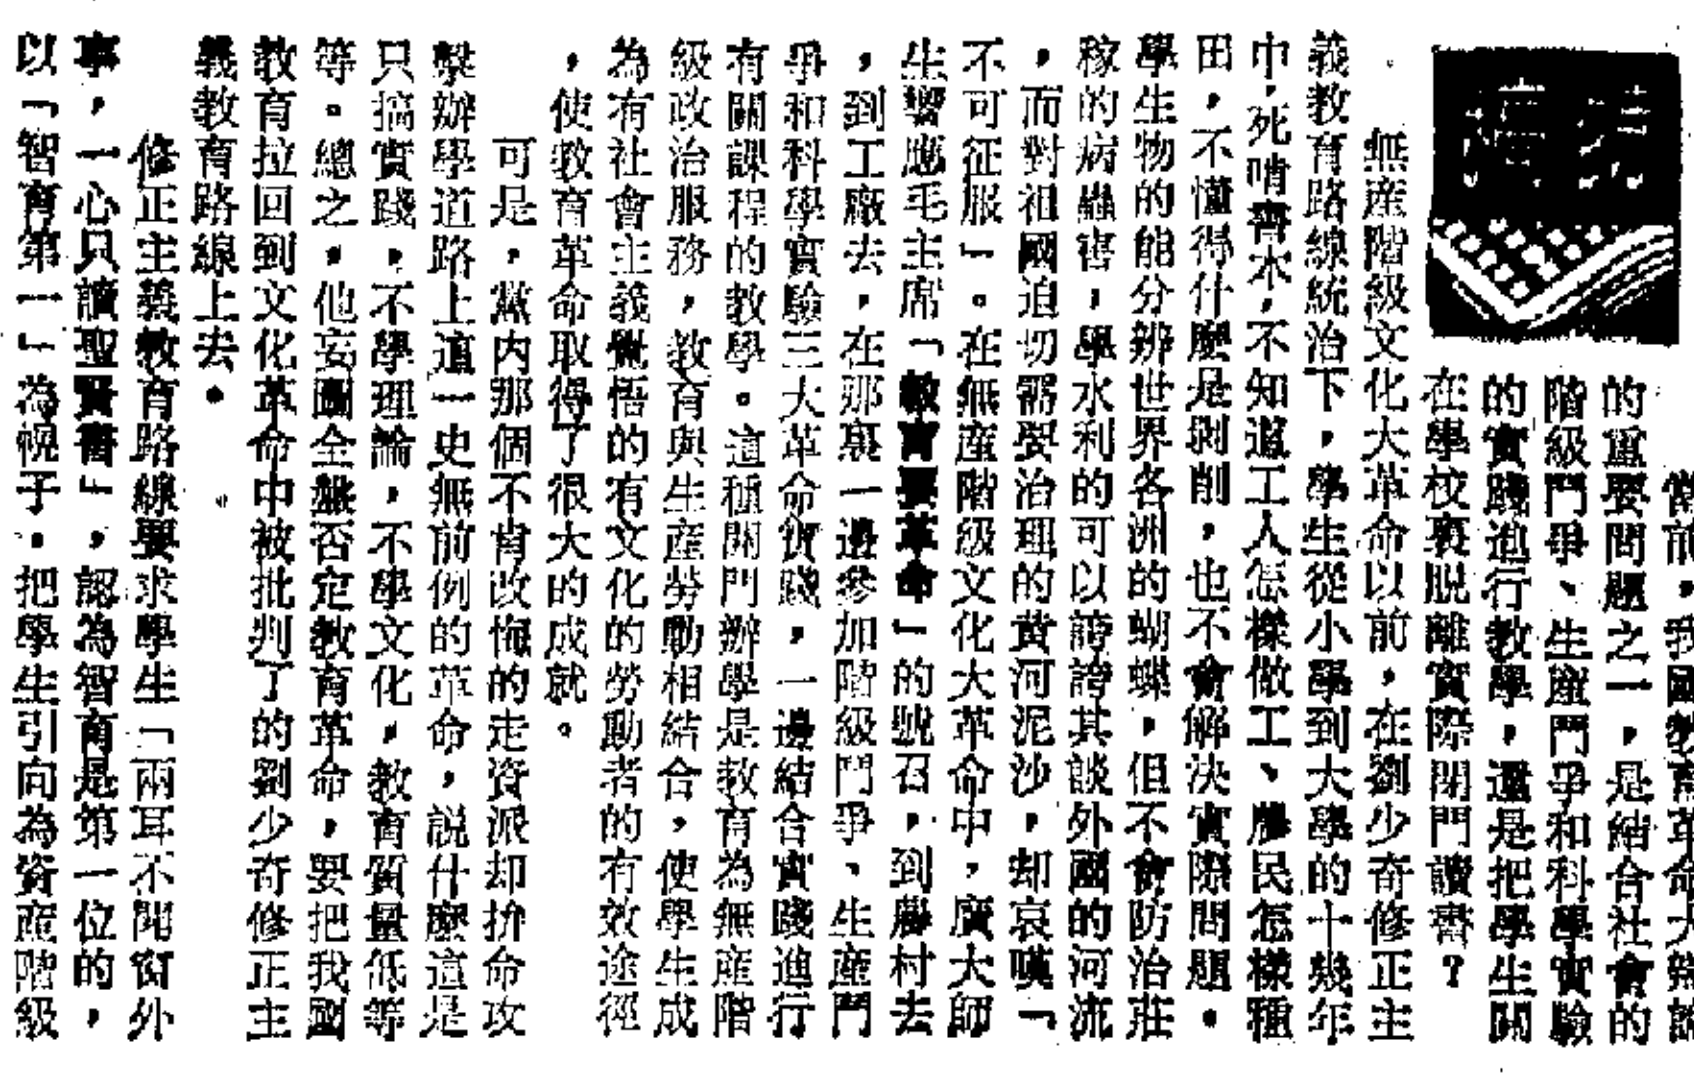 當前,我國教育革命大辯論
的重要問題之一,是結合社會的
階級鬥爭、生產鬥爭和科學實驗
的實踐進行教學,還是把學生關
在學校裏脱離實際閉門讀書?
無產階級文化大革命以前,在劉少奇修正主
義教育路線統治下,學生從小學到大學的十幾年
中,死啃書本,不知道工人怎樣做工、農民怎樣種
田,不懂得什麽是剝削,也不會解決實際問題。
學生物的能分辨世界各洲的蝴蝶,但不會防治莊
稼的病蟲害,學水利的可以誇誇其談外國的河流
,而對祖國迫切需要治理的黄河泥沙,却哀嘆「
不可征服」。在無產階級文化大革命中,廣大師
生響應毛主席「教育要革命」的號召,到農村去
,到工廠去,在那裏一邊參加階級鬥爭、生產鬥
爭和科學實驗三大革命實踐,一邊結合實踐進行
有關課程的教學。這種開門辦學是教育為無產階
級政治服務,教育與生產勞動相結合,使學生成
為有社會主義覺悟的有文化的勞動者的有效途徑
,使教育革命取得了很大的成就。
可是,黨内那個不肯改悔的走資派却拚命攻
擊辦學道路上這一史無前例的革命,説什麽這是
只搞實踐,不學理論,不學文化,教育質量低等
等。總之,他妄圖全盤否定教育革命,要把我國
教育拉回到文化革命中被批判了的劉少奇修正主
義教育路線上去。
修正主義教育路線要求學生「兩耳不聞窗外
事,一心只讀聖賢書」,認為智育是第一位的,
以「智育第一」為幌子,把學生引向為資產階級